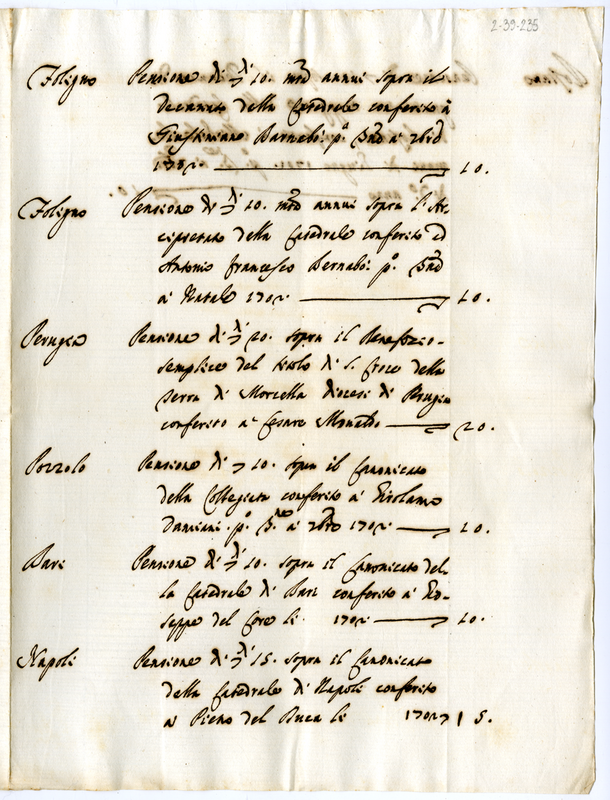 2-39-235
Foligno Pensione di 10. mta annui sopra il
Decanato della Catedrale conferito à
Giustiniano Barnabò: pª à
10.
Foligno Pensione di 10. mta annui sopra l'Ar-
cipretato della Catedrale conferito ad
Antonio Francesco Bernabò: pª
a Natale 1702 10.
Perugia Pensione di 20. sopra il Beneficio
semplice del titolo di S. Croce della
serra di Morcella diocesi di Perugia
conferito à Cesare Monaldo 20.
Pensione di 10. sopra il Canonicato
della Collegiata conferito à Girolamo
Damiani. pª à 1702 10.
Bari Pensione di 10. sopra il Canonicato del-
la Catedrale di Bari conferito à Giu-
seppe del Core li 1702 10.
Napoli Pensione di 15. sopra il Canonicato
della Catedrale di Napoli conferito
a del Buca li 1702 15.